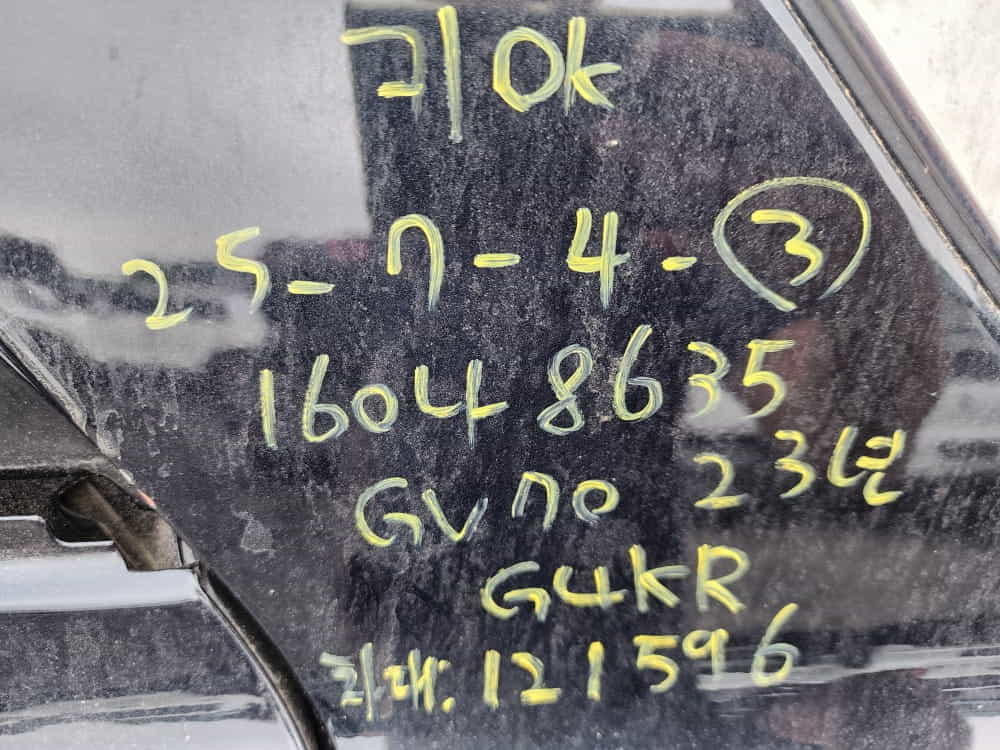 키 OK
25-7-4-③
16048635
GV70 23년
G4KR
차대. 121596